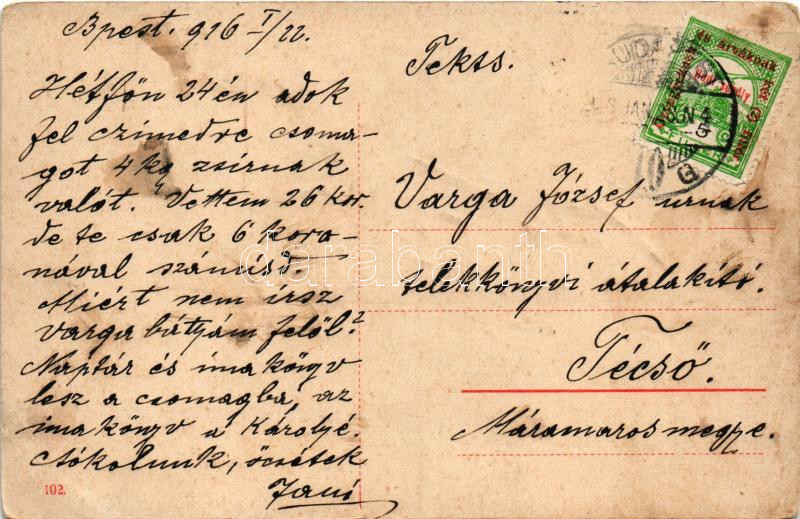 Bpest. 916 I/22.
Hétfőn 24én adok
fel czimedre csoma-
got 4 kg zsírnak
valót. Vettem 26 kor.
de te csak 6 koro-
nával számísd.
Miért nem írsz
Varga bátyám felől?
Naptár és imakönyv
lesz a csomagba, az
imakönyv a Károlyé.
Csókolunk, öcsétek
Jani
102.
Tekts.
Varga József urnak
telekkönyvi átalakító.
Técső.
Máramaros megye.
darabanth